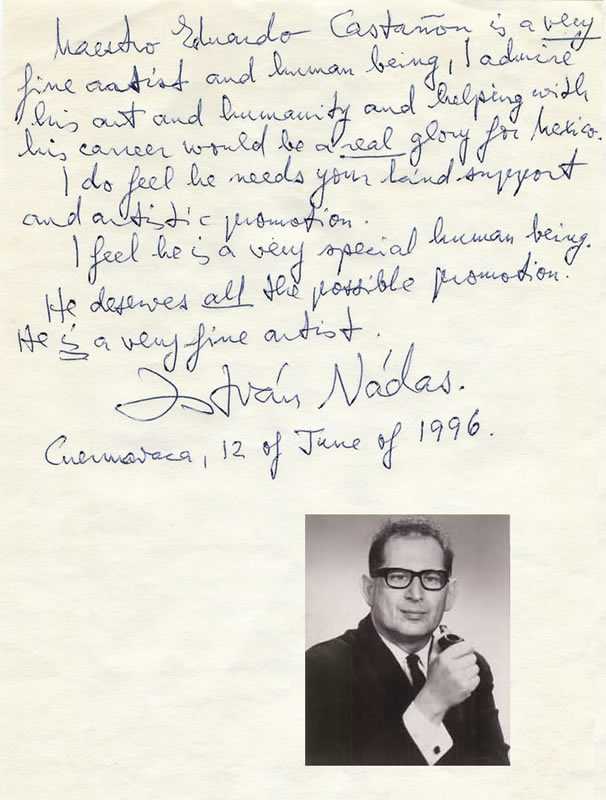 Maestro Eduardo Castañón is a very
fine artist and human being, I admire
his art and humanity and helping with
his career would be a real glory for Mexico.
I do feel he needs your kind support
and artistic promotion.
I feel he is a very special human being.
He deserves all the possible promotion.
He is a very fine artist.
István Nádas.
Cuernavaca, 12 of June of 1996.